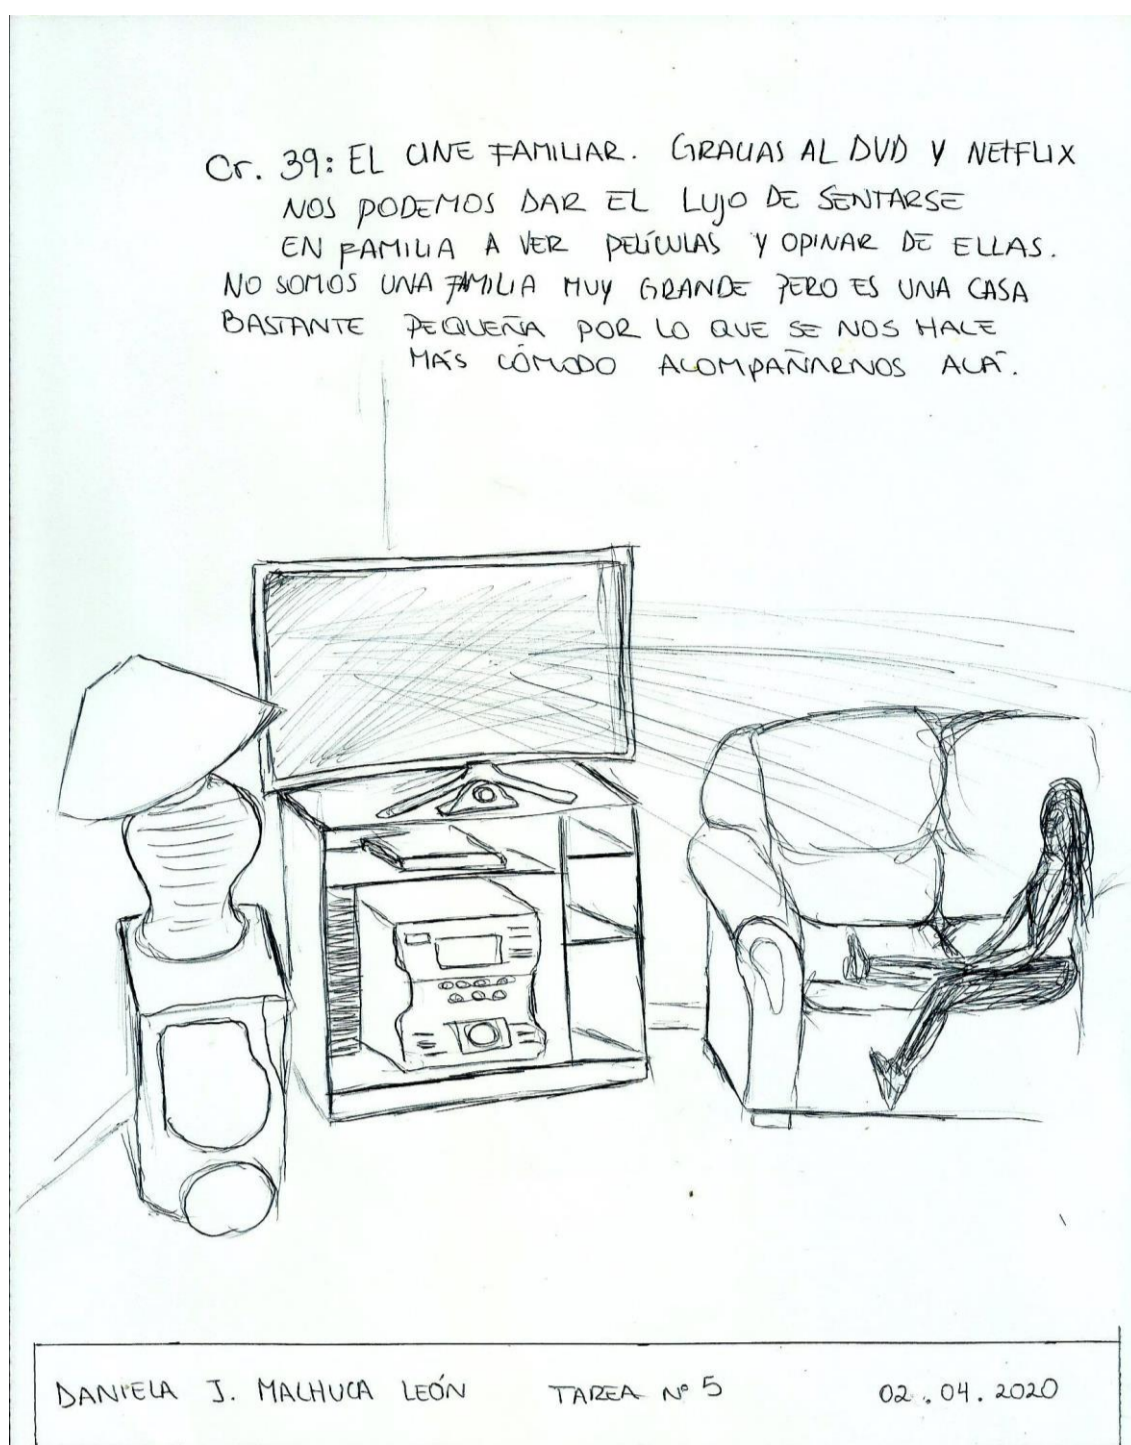 Cr. 39: EL CINE FAMILIAR. GRACIAS AL DVD Y NETFLIX
NOS PODEMOS DAR EL LUJO DE SENTARSE
EN FAMILIA A VER PELÍCULAS Y OPINAR DE ELLAS.
NO SOMOS UNA FAMILIA MUY GRANDE PERO ES UNA CASA
BASTANTE PEQUEÑA POR LO QUE SE NOS HACE
MÁS CÓMODO ACOMPAÑARNOS ACÁ.
DANIELA J. MACHUCA LEÓN TAREA Nº 5 02.04.2020